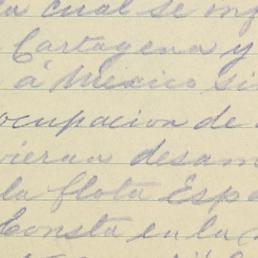 la cual se
Cartagena y
á México si
ocupacion de
vieran desam
la flota Espa
Consta en la